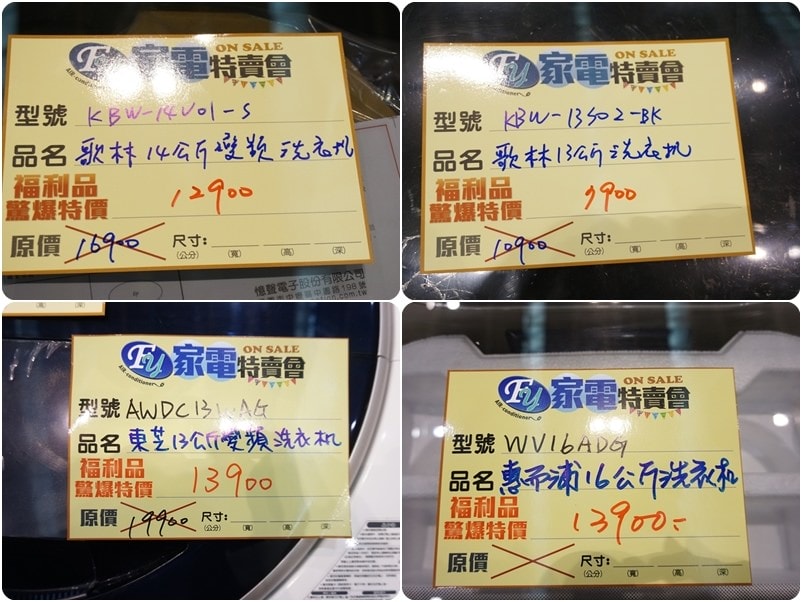 FY 家電特賣會 ON SALE
AIR-conditioner
型號 KBW-14V01-S
品名 歌林14公斤變頻洗衣机
福利品
驚爆特價 12900
原價 16900 尺寸: (公分) (寬) (高) (深)
憶聲電子股份有限公司
FY 家電特賣會 ON SALE
AIR-conditioner
型號 KBW-13S02-BK
品名 歌林13公斤洗衣机
福利品
驚爆特價 7900
原價 10900 尺寸: (公分) (寬) (高) (深)
FY 家電特賣會 ON SALE
AIR-conditioner
型號 AWDC13WAG
品名 東芝13公斤變頻洗衣机
福利品
驚爆特價 13900
原價 19900 尺寸: (公分) (寬) (高) (深)
FY 家電特賣會 ON SALE
AIR-conditioner
型號 WV16ADG
品名 惠而浦16公斤洗衣机
福利品
驚爆特價 13900.-
原價 尺寸: (公分) (寬) (高) (深)